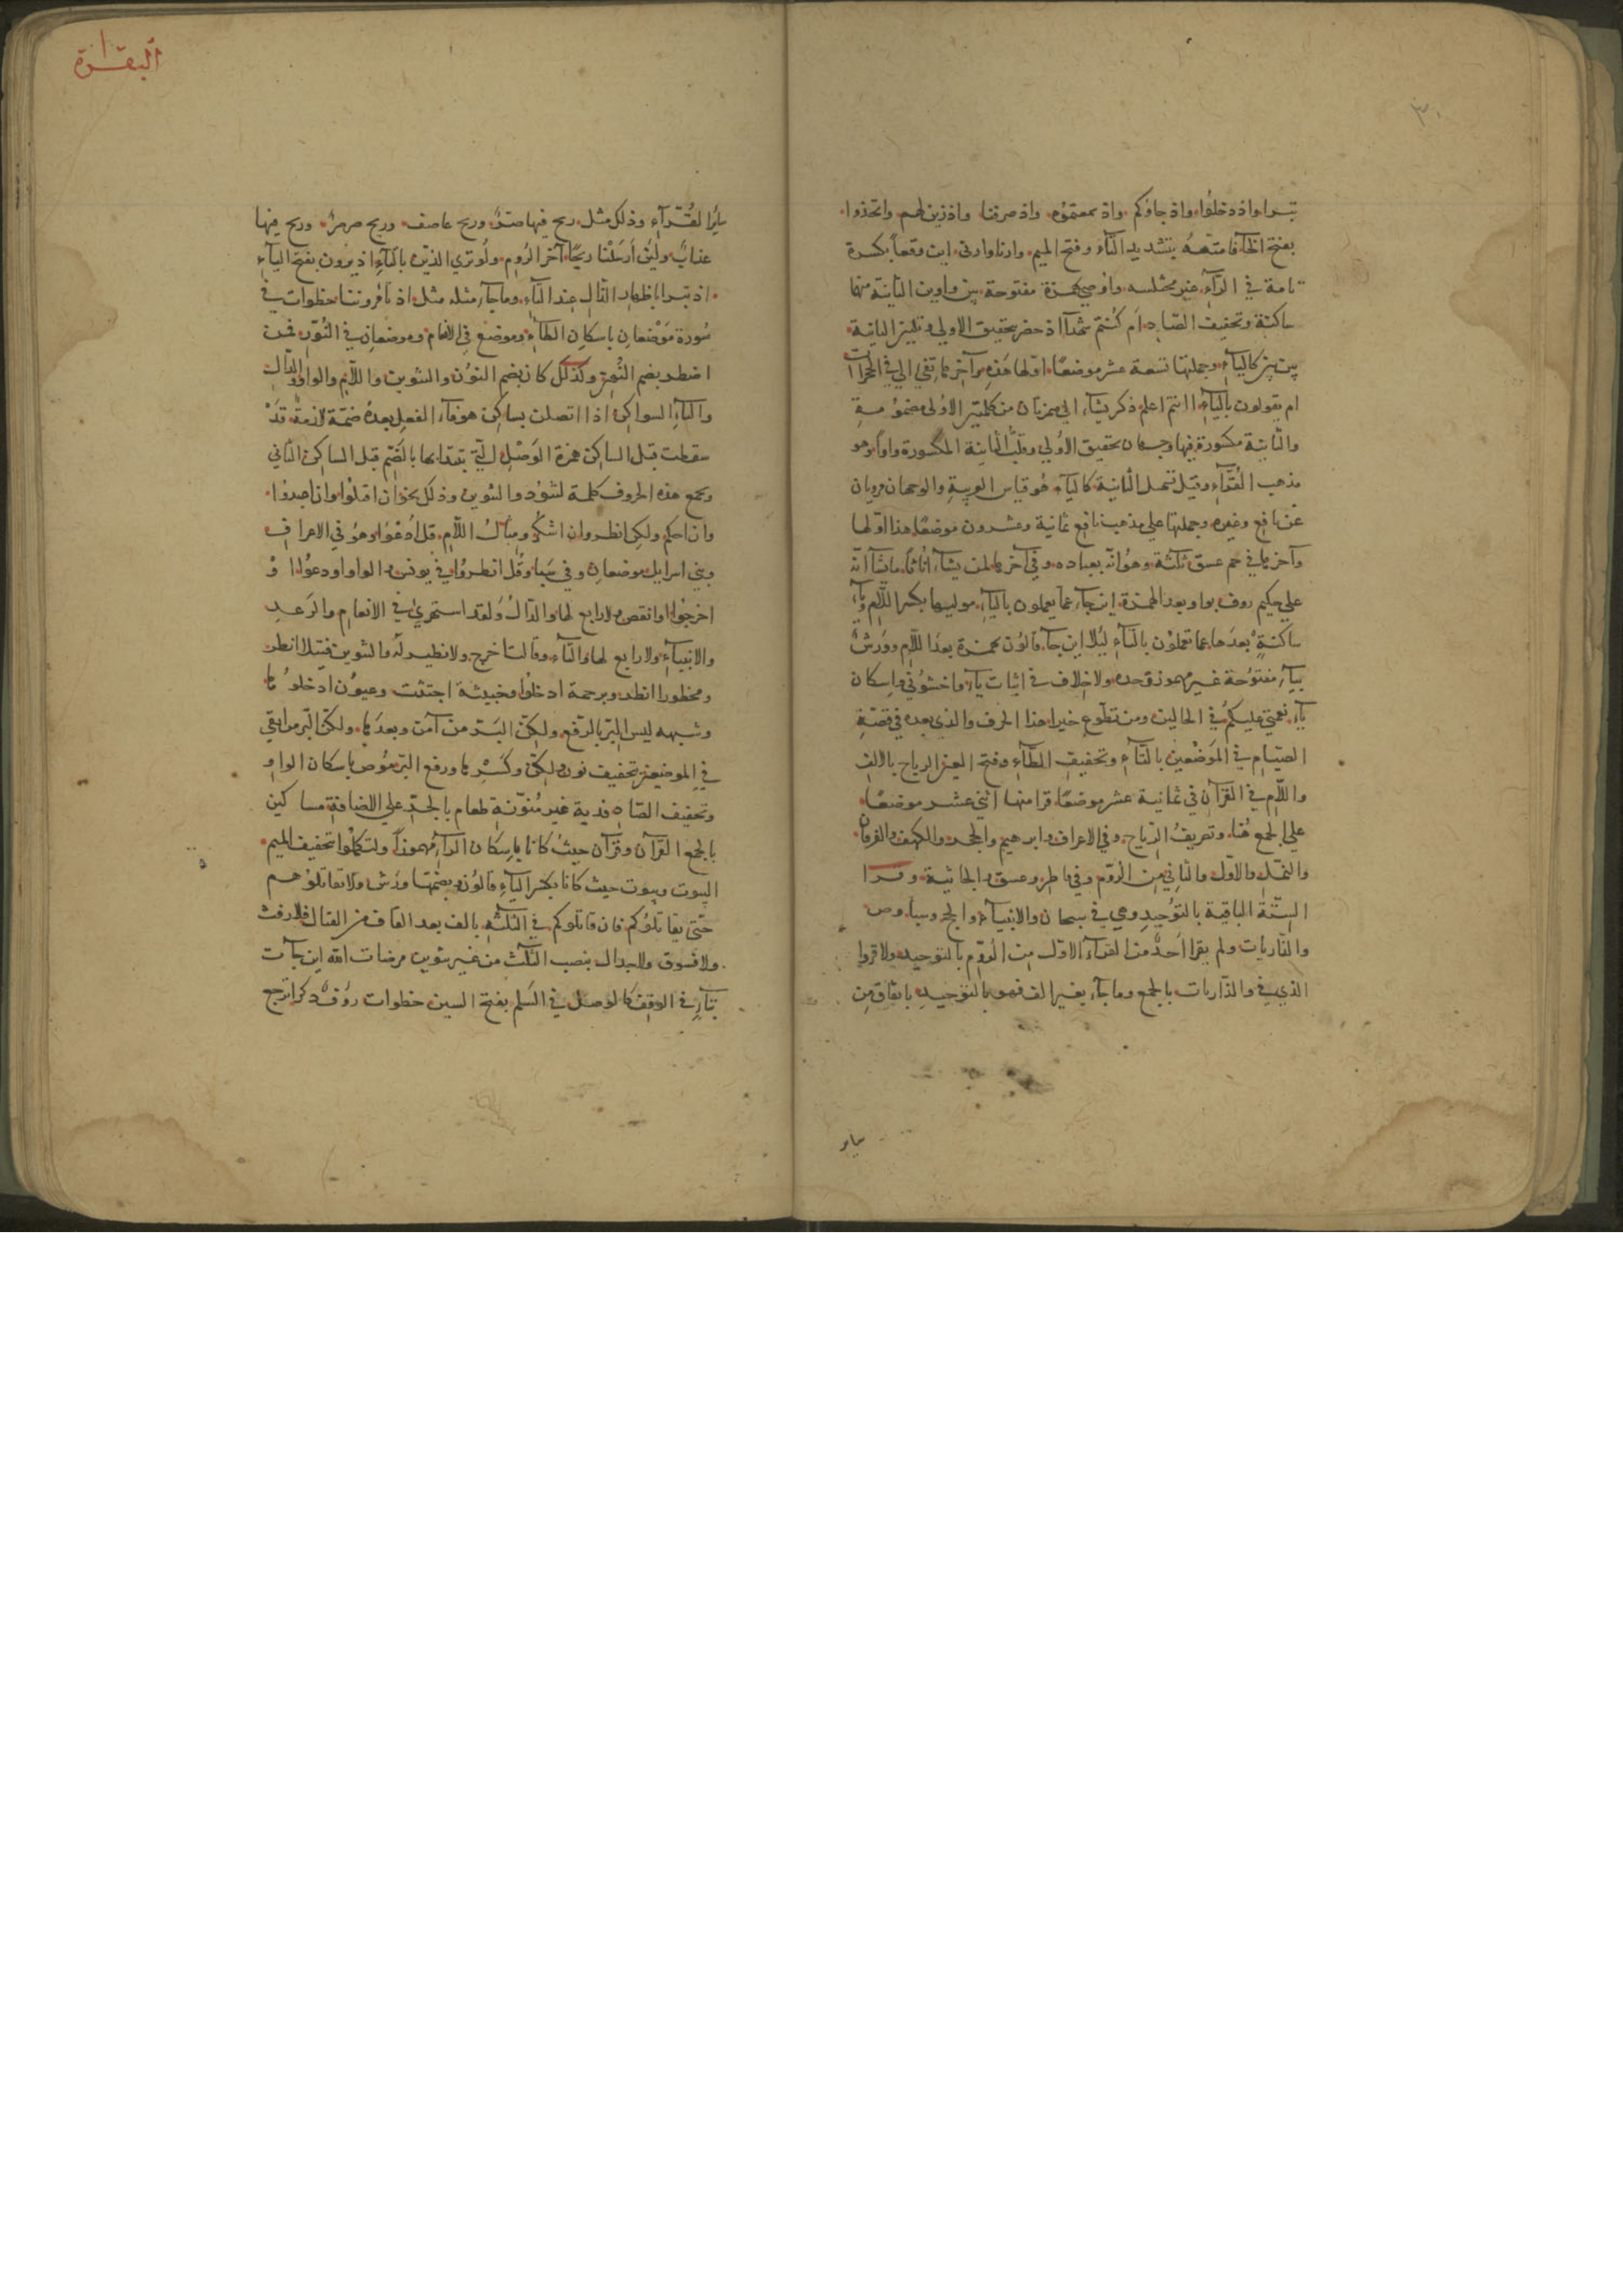 تبرا واذ دخلوا واذ جاؤكم واذ سمعتموه واذ صرفنا واذ زين لهم واتخذوا
بفتح الخآ فامتعهُ بتشديد التآء وفتح الميم وارنا وارنى اين وقعا بكسرة
تامة في الرآء غير مختلسه واوصي بهمزة مفتوحة بين واوين الثانية منهما
ساكنة وتخفيف الصاد ام كنتم شهدآ اذ حضر بتحقيق الاولي وتليين الثانية
بين بين كاليآء وجملتها تسعة عشر موضعًا اولها هذه وآخرها تفي الي في الحجرات
ام يقولون باليآء اانتم اعلم ذكر يشاء الي همزتان من كلمتين الاولى مضمومة
والثانية مكسورة فيها وجهان تحقيق الاولي وقلب الثانية المكسورة واوًا وهو
مذهب القرّآء وقيل تسهل الثانية كاليآء هو قياس العربية والوجهان مرويان
عن نافع وغيره وجملتها علي مذهب نافع ثمانية وعشرون موضعًا هذا اوّلها
وآخرها في حم عسق ثلثة وهو انّه بعباده وفي آخرها لمن يشآء اناثًا ما يشآ انّه
علي حكيم روف بواو بعد الهمزة اين جآء عما يعملون باليآء موليها بكسر اللام ويآء
ساكنةٍ بعدها عما تعملون بالتآء ليلا اين جآء قالون بهمزة بعد اللام وورش
بيآء مفتوحة غير مهموز وحده ولا خلاف في اثبات يآء واخشوني واسكان
يآء نعمتي عليكم في الحالين ومن تطوع خيرا هذا الحرف والذي بعده في قصّة
الصيام في الموضعين بالتآء وتخفيف الطآء وفتح العين الرياح بالالف
واللام في القرآن في ثمانية عشر موضعًا قرا منها اثني عشر موضعًا
علي الجمع هُنا وتصريف الرياح وفي الاعراف وابرهيم والحجر والكهف والفرقان
والنمل والاول والثاني من الروم وفي فاطر وعسق والجاثية وقرا
الستّة الباقية بالتوحيد وهي في سبحان والانبيآء والحج وسبا وص
والذاريات ولم يقرا احدٌ من القرآء الاول من الروم بالتوحيد ولا قروا
الذي في والذاريات بالجمع وما جآء بغير الف فهو بالتوحيد باتفاق من
ساير
البقرة
ساير القُرّآء وذلك مثل ريح فيها صرٌّ وريح عاصف وريح صرصرٌ وريح فيها
عذابٌ ولئن أرسلنا ريحًا آخر الروم ولو تري الذين بالتآء اذ يرون بفتح اليآء
اذ تبرا باظهار الذال عند التآء وما جآء مثله مثل اذ تامروننا خطوات في
سورة موضعان باسكان الطآء وموضع في الانعام وموضعان في النّور فمن
اضطر بضم النون وكذلك كان بضم النون والتنوين واللام والواو والدال
والتآء السواكن اذا اتصلن بساكن هو فآء الفعل بعده ضمّة لازمة قد
سقطت قبل الساكن همزة الوصل التي تبتدا بها بالضم قبل الساكن الثاني
ويجمع هذه الحروف كلمة لتنود والتنوين وذلك نحو ان اقتلوا وان اعبدوا
وان احكم ولكن انظر وان اشكر ومثال اللام قل ادعوا وهو في الاعراف
وبني اسرايل موضعان وفي سبا وقل انظروا في يونس والواو او ادعوا او
اخرجوا او انقص ولا رابع لها والدال ولقد استهزئ في الانعام والرعد
والانبيآء ولا رابع لها والتآء وقالت اخرج ولا نظير له والتنوين فتيلا انظر
ومحظورا انظر وبرحمة ادخلوا وخبيثة اجتثت وعيون ادخلوها
وشبهه ليس البرّ بالرفع ولكنّ البرّ من آمن وبعدها ولكنّ البرّ من اتقي
في الموضعين بتخفيف نون ولكن وكسرها ورفع البر موص باسكان الواو
وتخفيف الصّاد فدية غير مُنوّنة طعام بالجرّ علي الاضافة مساكين
بالجمع القرآن وقرآن حيث كانا باسكان الرآء مهموزًا ولتكملوا بتخفيف الميم
البيوت وبيوت حيث كانا بكسر اليآء قالون وبضمّها ورش ولا تقاتلوهم
حتّى يقاتلوكم فان قاتلوكم في الثلثه بالف بعد القاف من القتال فلا رفث
ولا فسوق ولا جدال بنصب الثلث من غير تنوين مرضات اللّه اين جآت
بتآء في الوقف كالوصل في السلم بفتح السين خطوات رؤف ذكرا ترجع